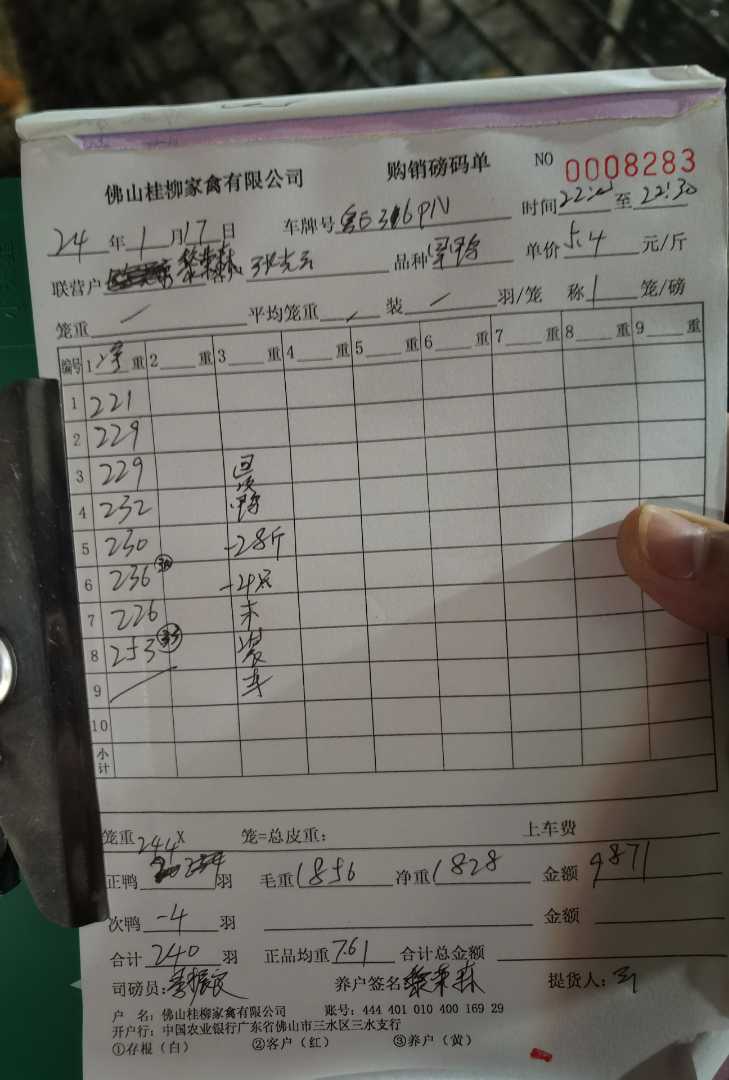 佛山桂柳家禽有限公司 购销磅码单 NO 0008283
24年1月17日 车牌号 时间22: 至22:30
联营户 客户 品种 单价5.4元/斤
笼重 / 平均笼重 / 装 / 羽/笼 称1笼/磅
编号 1 重 2 重 3 重 4 重 5 重 6 重 7 重 8 重 9 重
1 221
2 229
3 229 回
4 232
5 230 -28斤
6 236 -4只
7 226 未
8 253 33 装
9 / 车
10
小计
笼重 X 笼=总皮重: 上车费
正鸭 244 羽 毛重1856 净重1828 金额9871
次鸭 -4 羽 金额
合计 240 羽 正品均重7.61 合计总金额
司磅员: 养户签名 提货人:
户 名: 佛山桂柳家禽有限公司 账号: 444 401 010 400 169 29
开户行: 中国农业银行广东省佛山市三水区三水支行
①存根(白) ②客户(红) ③养户(黄)